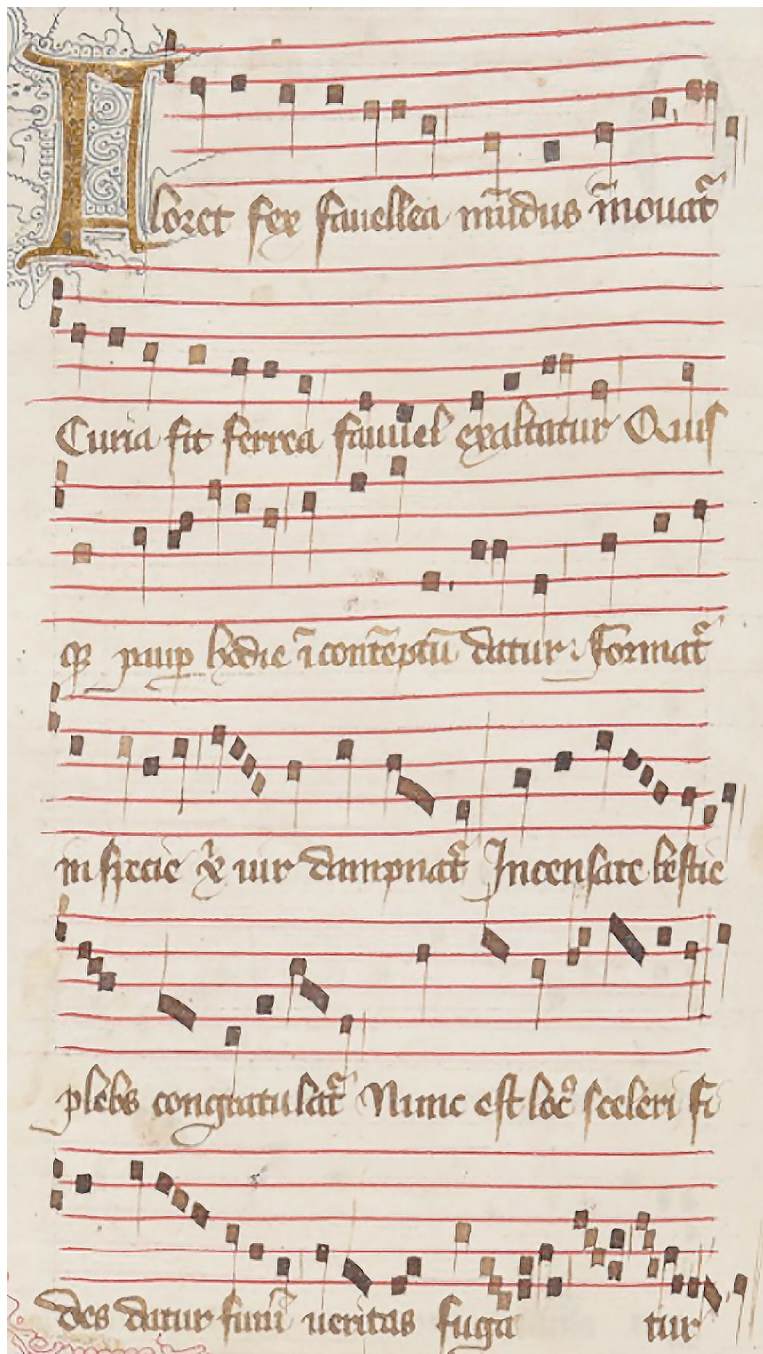 Floret fex fauellea mūdus īnouat᷑
Curia fit ferrea fauuel exaltatur Quis
qꝫ paup̲ hodie ī contēptū datur. Format᷑
in specie uir dampnat᷑ Incensate bestie
plebs congratulat᷑ Nunc est locꝰ sceleri fi
des datur fun̄i ueritas fuga tur